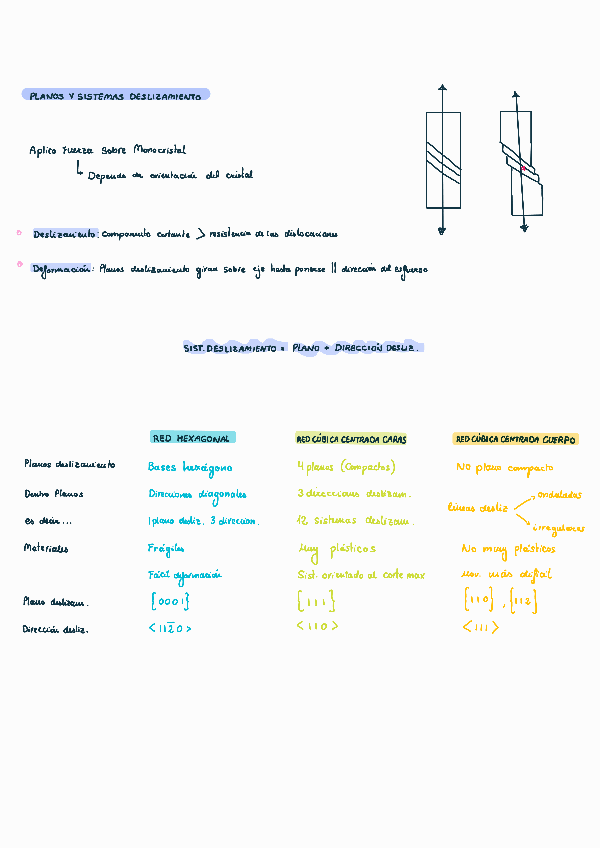 PLANOS Y SISTEMAS DESLIZAMIENTO
Aplico Fuerza Sobre Monocristal
↳ Depende de orientación del cristal
Deslizamiento: Componente cortante > resistencia de las dislocaciones
Deformación: Planos deslizamiento giran sobre eje hasta ponerse || dirección del esfuerzo
SIST. DESLIZAMIENTO = PLANO + DIRECCIÓN DESLIZ.
RED HEXAGONAL RED CÚBICA CENTRADA CARAS RED CÚBICA CENTRADA CUERPO
Planos deslizamiento Bases hexágono 4 planos (Compactos) No plano compacto
Dentro Planos Direcciones diagonales 3 direcciones deslizam. líneas desliz → onduladas
es decir... 1 plano desliz. 3 direccion. 12 sistemas deslizam. → irregulares
Materiales Frágiles Muy plásticos No muy plásticos
Fácil deformación Sist. orientado al corte max mov. más difícil
Plano deslizam. {0001} {111} {110}, {112}
Dirección desliz. <112̅0> <110> <111>